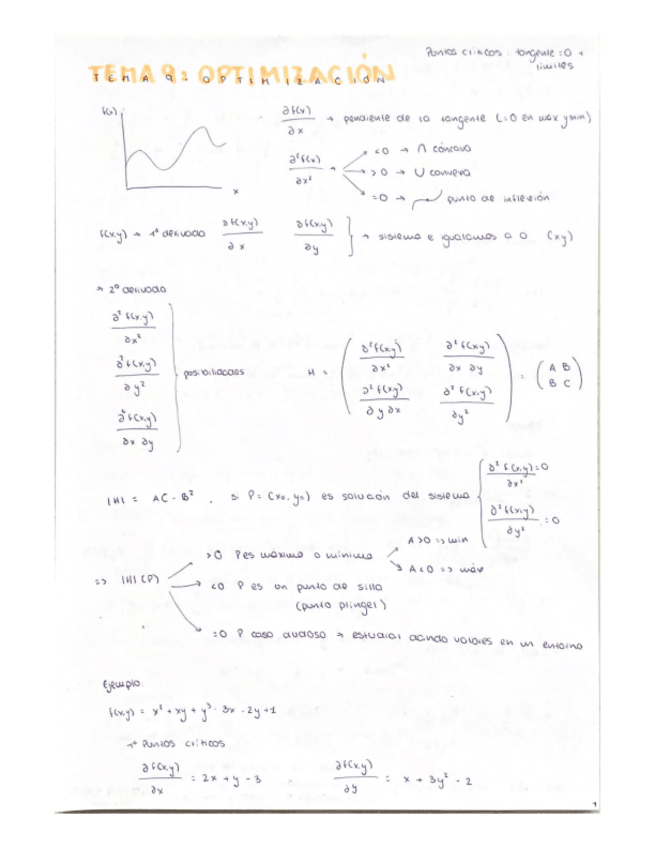 Puntos críticos: tangente = 0 + límites
TEMA 9: OPTIMIZACIÓN
f(x)
x
∂f(x)/∂x → pendiente de la tangente (=0 en máx y min)
∂²f(x)/∂x² →
<0 → ∩ cóncava
>0 → ∪ convexa
=0 → punto de inflexión
f(x,y) → 1ª derivada ∂f(x,y)/∂x ∂f(x,y)/∂y } → sistema e igualamos a 0 (x,y)
→ 2ª derivada
∂²f(x,y)/∂x²
∂²f(x,y)/∂y²
∂²f(x,y)/∂x ∂y
} posibilidades
H = ( ∂²f(x,y)/∂x² ∂²f(x,y)/∂x ∂y
∂²f(x,y)/∂y ∂x ∂²f(x,y)/∂y² ) = ( A B
B C )
|H| = AC - B², si P = (x₀, y₀) es solución del sistema { ∂²f(x,y)/∂x² = 0
∂²f(x,y)/∂y² = 0
=> |H|(P)
>0 P es máximo o mínimo
A>0 => min
A<0 => máx
<0 P es un punto de silla
(punto pringel)
=0 P caso dudoso → estudiar dando valores en un entorno
Ejemplo:
f(x,y) = x² + xy + y³ - 3x - 2y + 1
1º Puntos críticos
∂f(x,y)/∂x = 2x + y - 3
∂f(x,y)/∂y = x + 3y² - 2
1